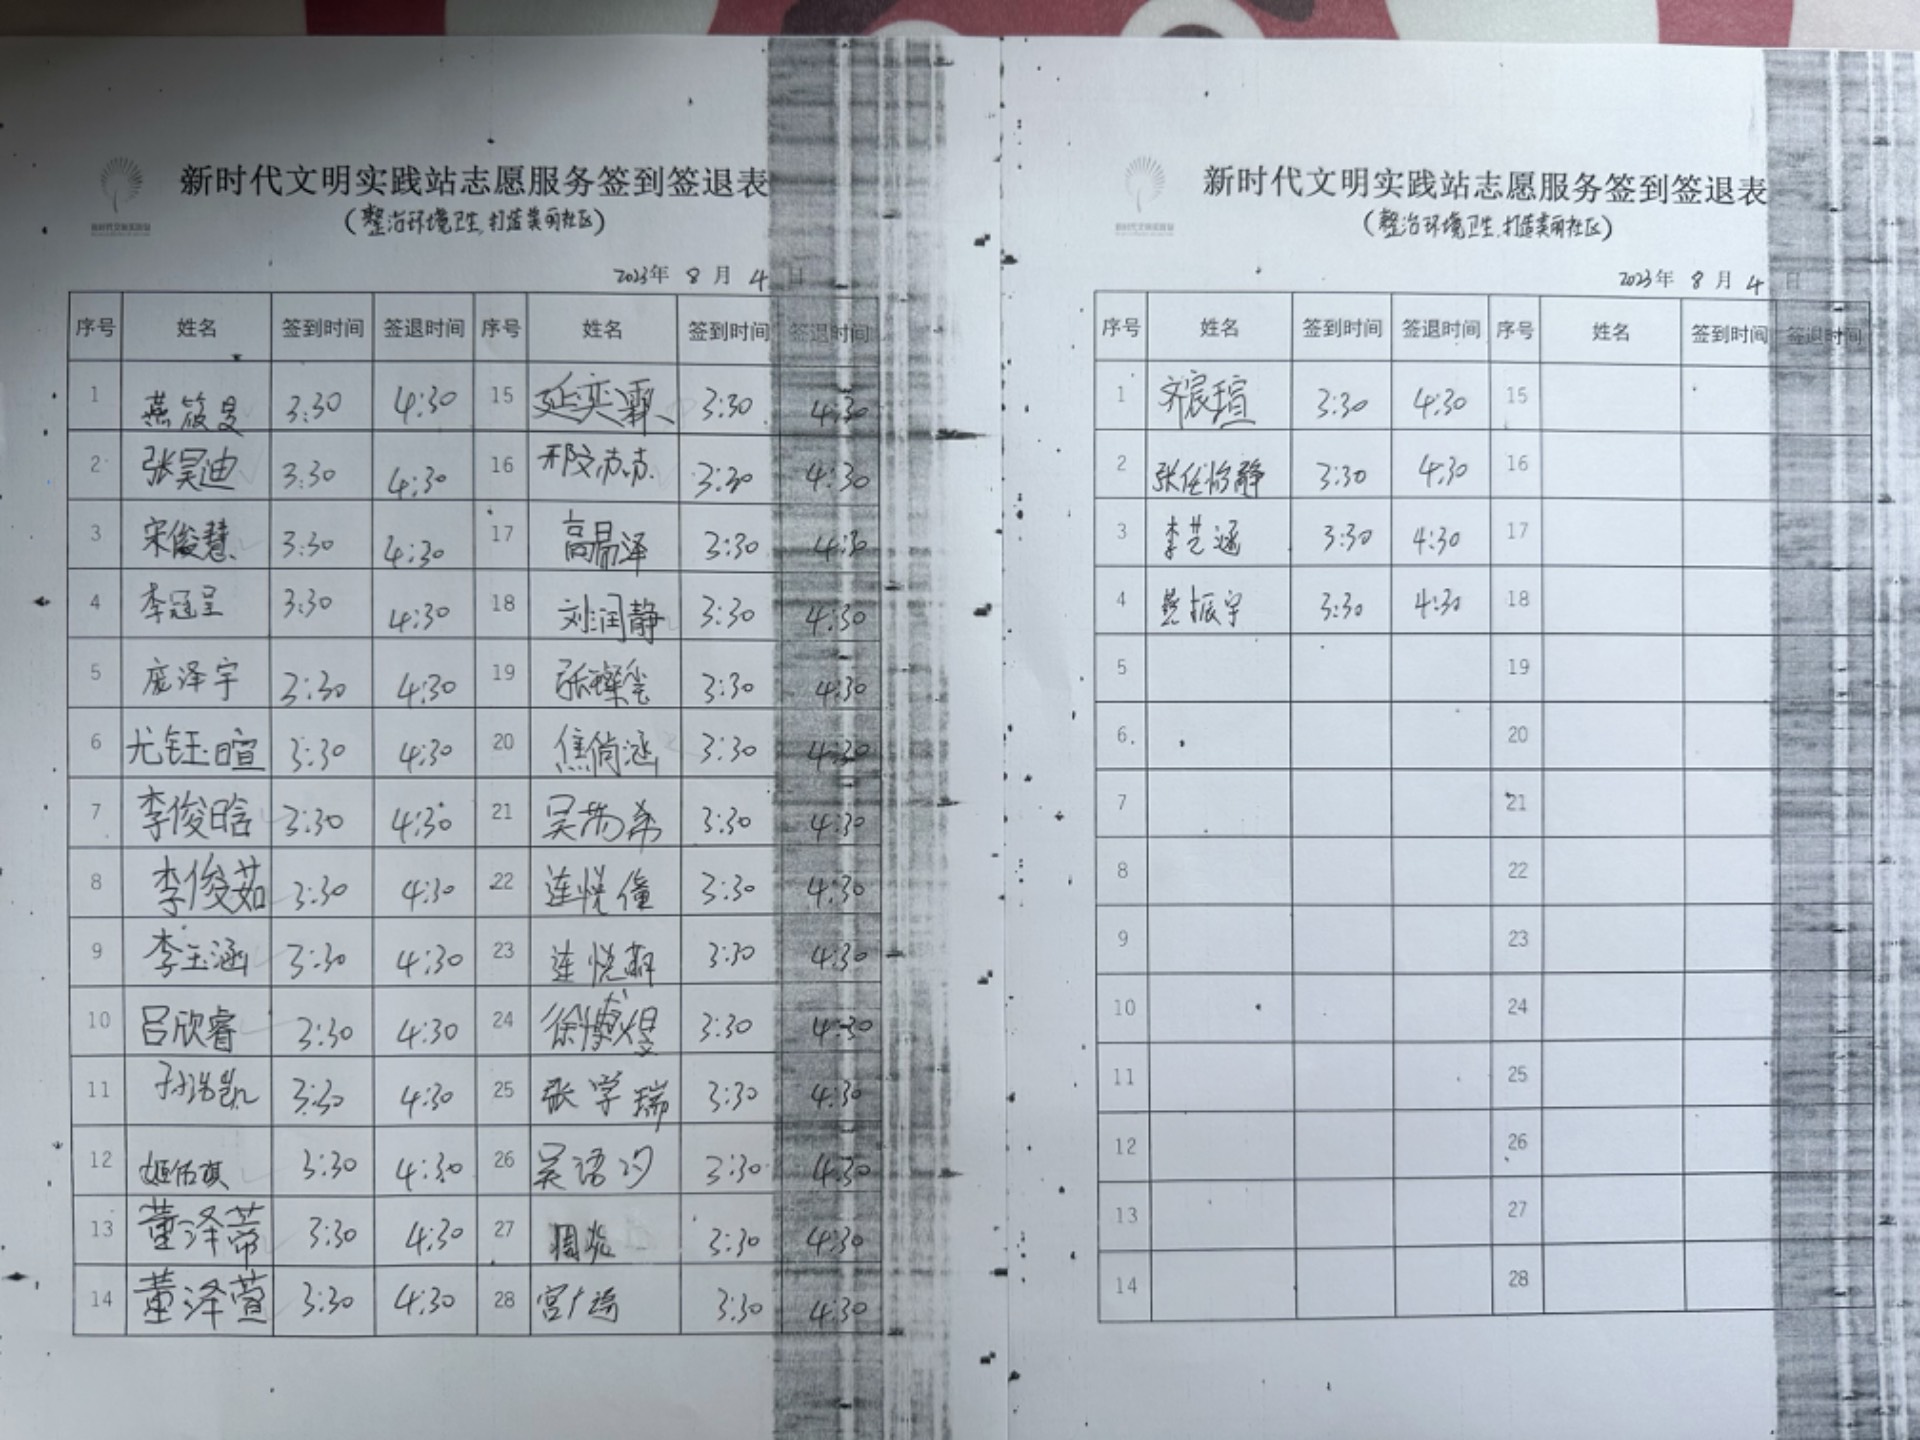 新时代文明实践站志愿服务签到签退表
(整治环境卫生,打造美丽社区)
2023年 8 月 4 日
序号 姓名 签到时间 签退时间 序号 姓名 签到时间 签退时间
1 燕筱旻 3:30 4:30 15 延奕霏 3:30 4:30
2 张昊迪 3:30 4:30 16 邢文苏 3:30 4:30
3 宋俊慧 3:30 4:30 17 高易泽 3:30 4:30
4 李冠呈 3:30 4:30 18 刘润静 3:30 4:30
5 庞泽宇 3:30 4:30 19 张璨莹 3:30 4:30
6 尤钰暄 3:30 4:30 20 焦尚涵 3:30 4:30
7 李俊晗 3:30 4:30 21 吴芮希 3:30 4:30
8 李俊茹 3:30 4:30 22 连悦僮 3:30 4:30
9 李玉涵 3:30 4:30 23 连悦 3:30 4:30
10 吕欣睿 3:30 4:30 24 徐煜 3:30 4:30
11 孙浩凯 3:30 4:30 25 张学瑞 3:30 4:30
12 姬佑琪 3:30 4:30 26 吴语汐 3:30 4:30
13 董泽蒂 3:30 4:30 27 3:30 4:30
14 董泽萱 3:30 4:30 28 宫广瑞 3:30 4:30
新时代文明实践站志愿服务签到签退表
(整治环境卫生,打造美丽社区)
2023年 8 月 4 日
序号 姓名 签到时间 签退时间 序号 姓名 签到时间 签退时间
1 齐宸瑄 3:30 4:30 15
2 张任怡静 3:30 4:30 16
3 李艺涵 3:30 4:30 17
4 燕振宇 3:30 4:30 18
5 19
6 20
7 21
8 22
9 23
10 24
11 25
12 26
13 27
14 28